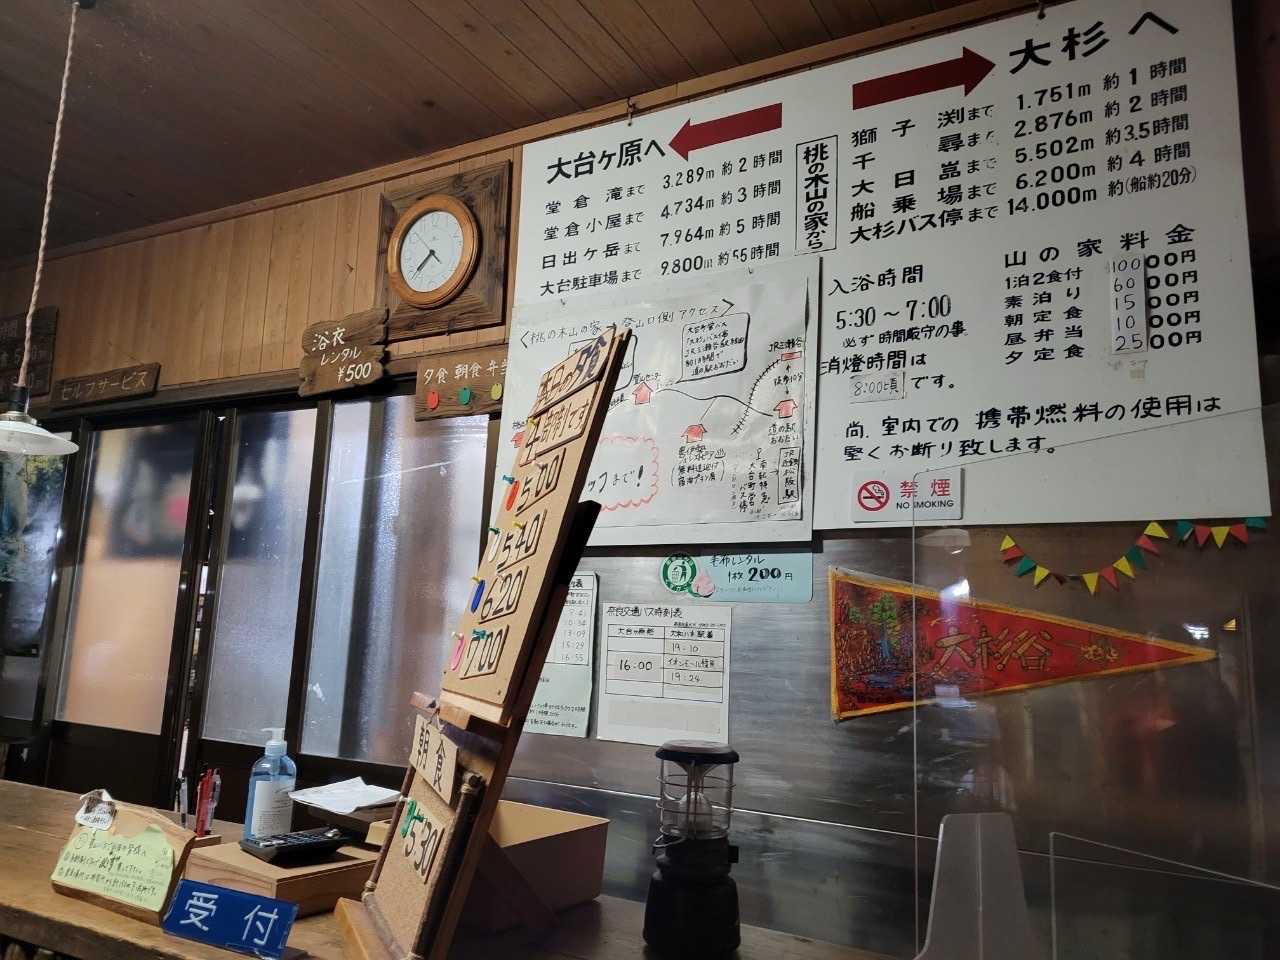 大杉へ
獅子渕まで 1.751m 約1時間
千尋まで 2.876m 約2時間
大日嵓まで 5.502m 約3.5時間
船乗場まで 6.200m 約4時間
大杉バス停まで 14.000m 約(船約20分)
桃の木山の家から
大台ヶ原へ
堂倉滝まで 3.289m 約2時間
堂倉小屋まで 4.734m 約3時間
日出ヶ岳まで 7.964m 約5時間
大台駐車場まで 9.800m 約5.5時間
入浴時間
5:30~7:00
必ず時間厳守の事
消燈時間は
8:00頃です。
山の家料金
1泊2食付 10000円
素泊り 6000円
朝定食 1500円
昼弁当 1000円
夕定食 2500円
尚、室内での携帯燃料の使用は
堅くお断り致します。
禁煙
NO SMOKING
登山口側アクセス>
JR三瀬谷
徒歩10分
道の駅
おおだい
ッコまで!
浴衣
レンタル
¥500
セルフサービス
夕食 朝食 弁当
本日の夕食
4部制です
5:00
5:40
6:20
7:00
朝食
5:30
毛布レンタル
1枚 200円
奈良交通バス時刻表
16:00
19:10
19:24
10:34
13:09
15:29
16:55
大杉谷
受付